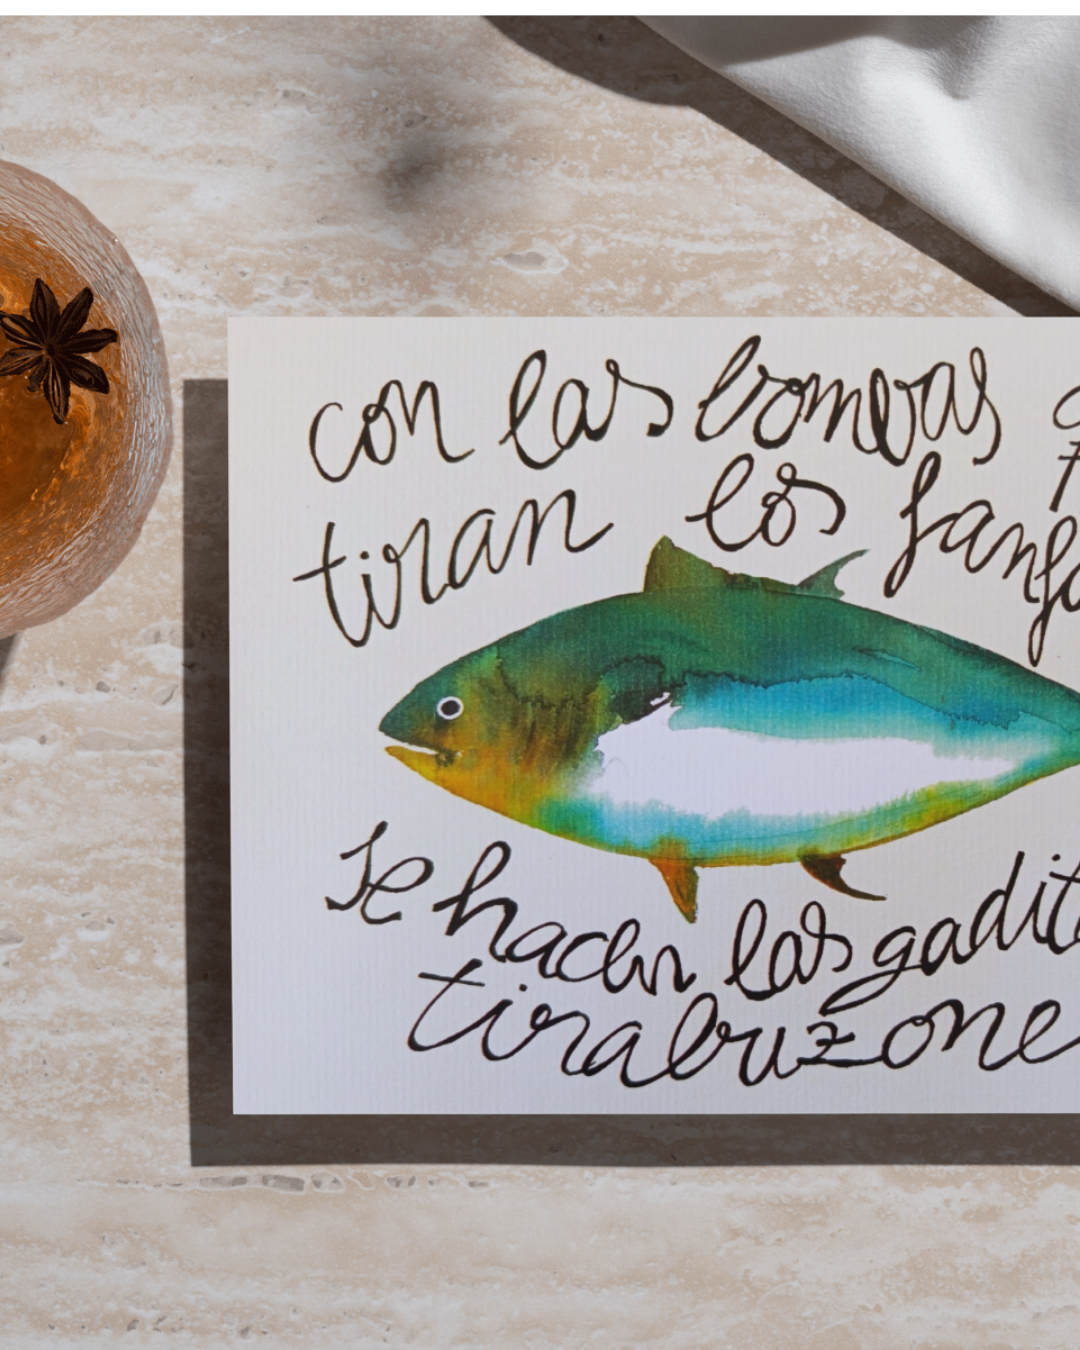 con las bombas
tiran los
se hacen las
tirabuzone